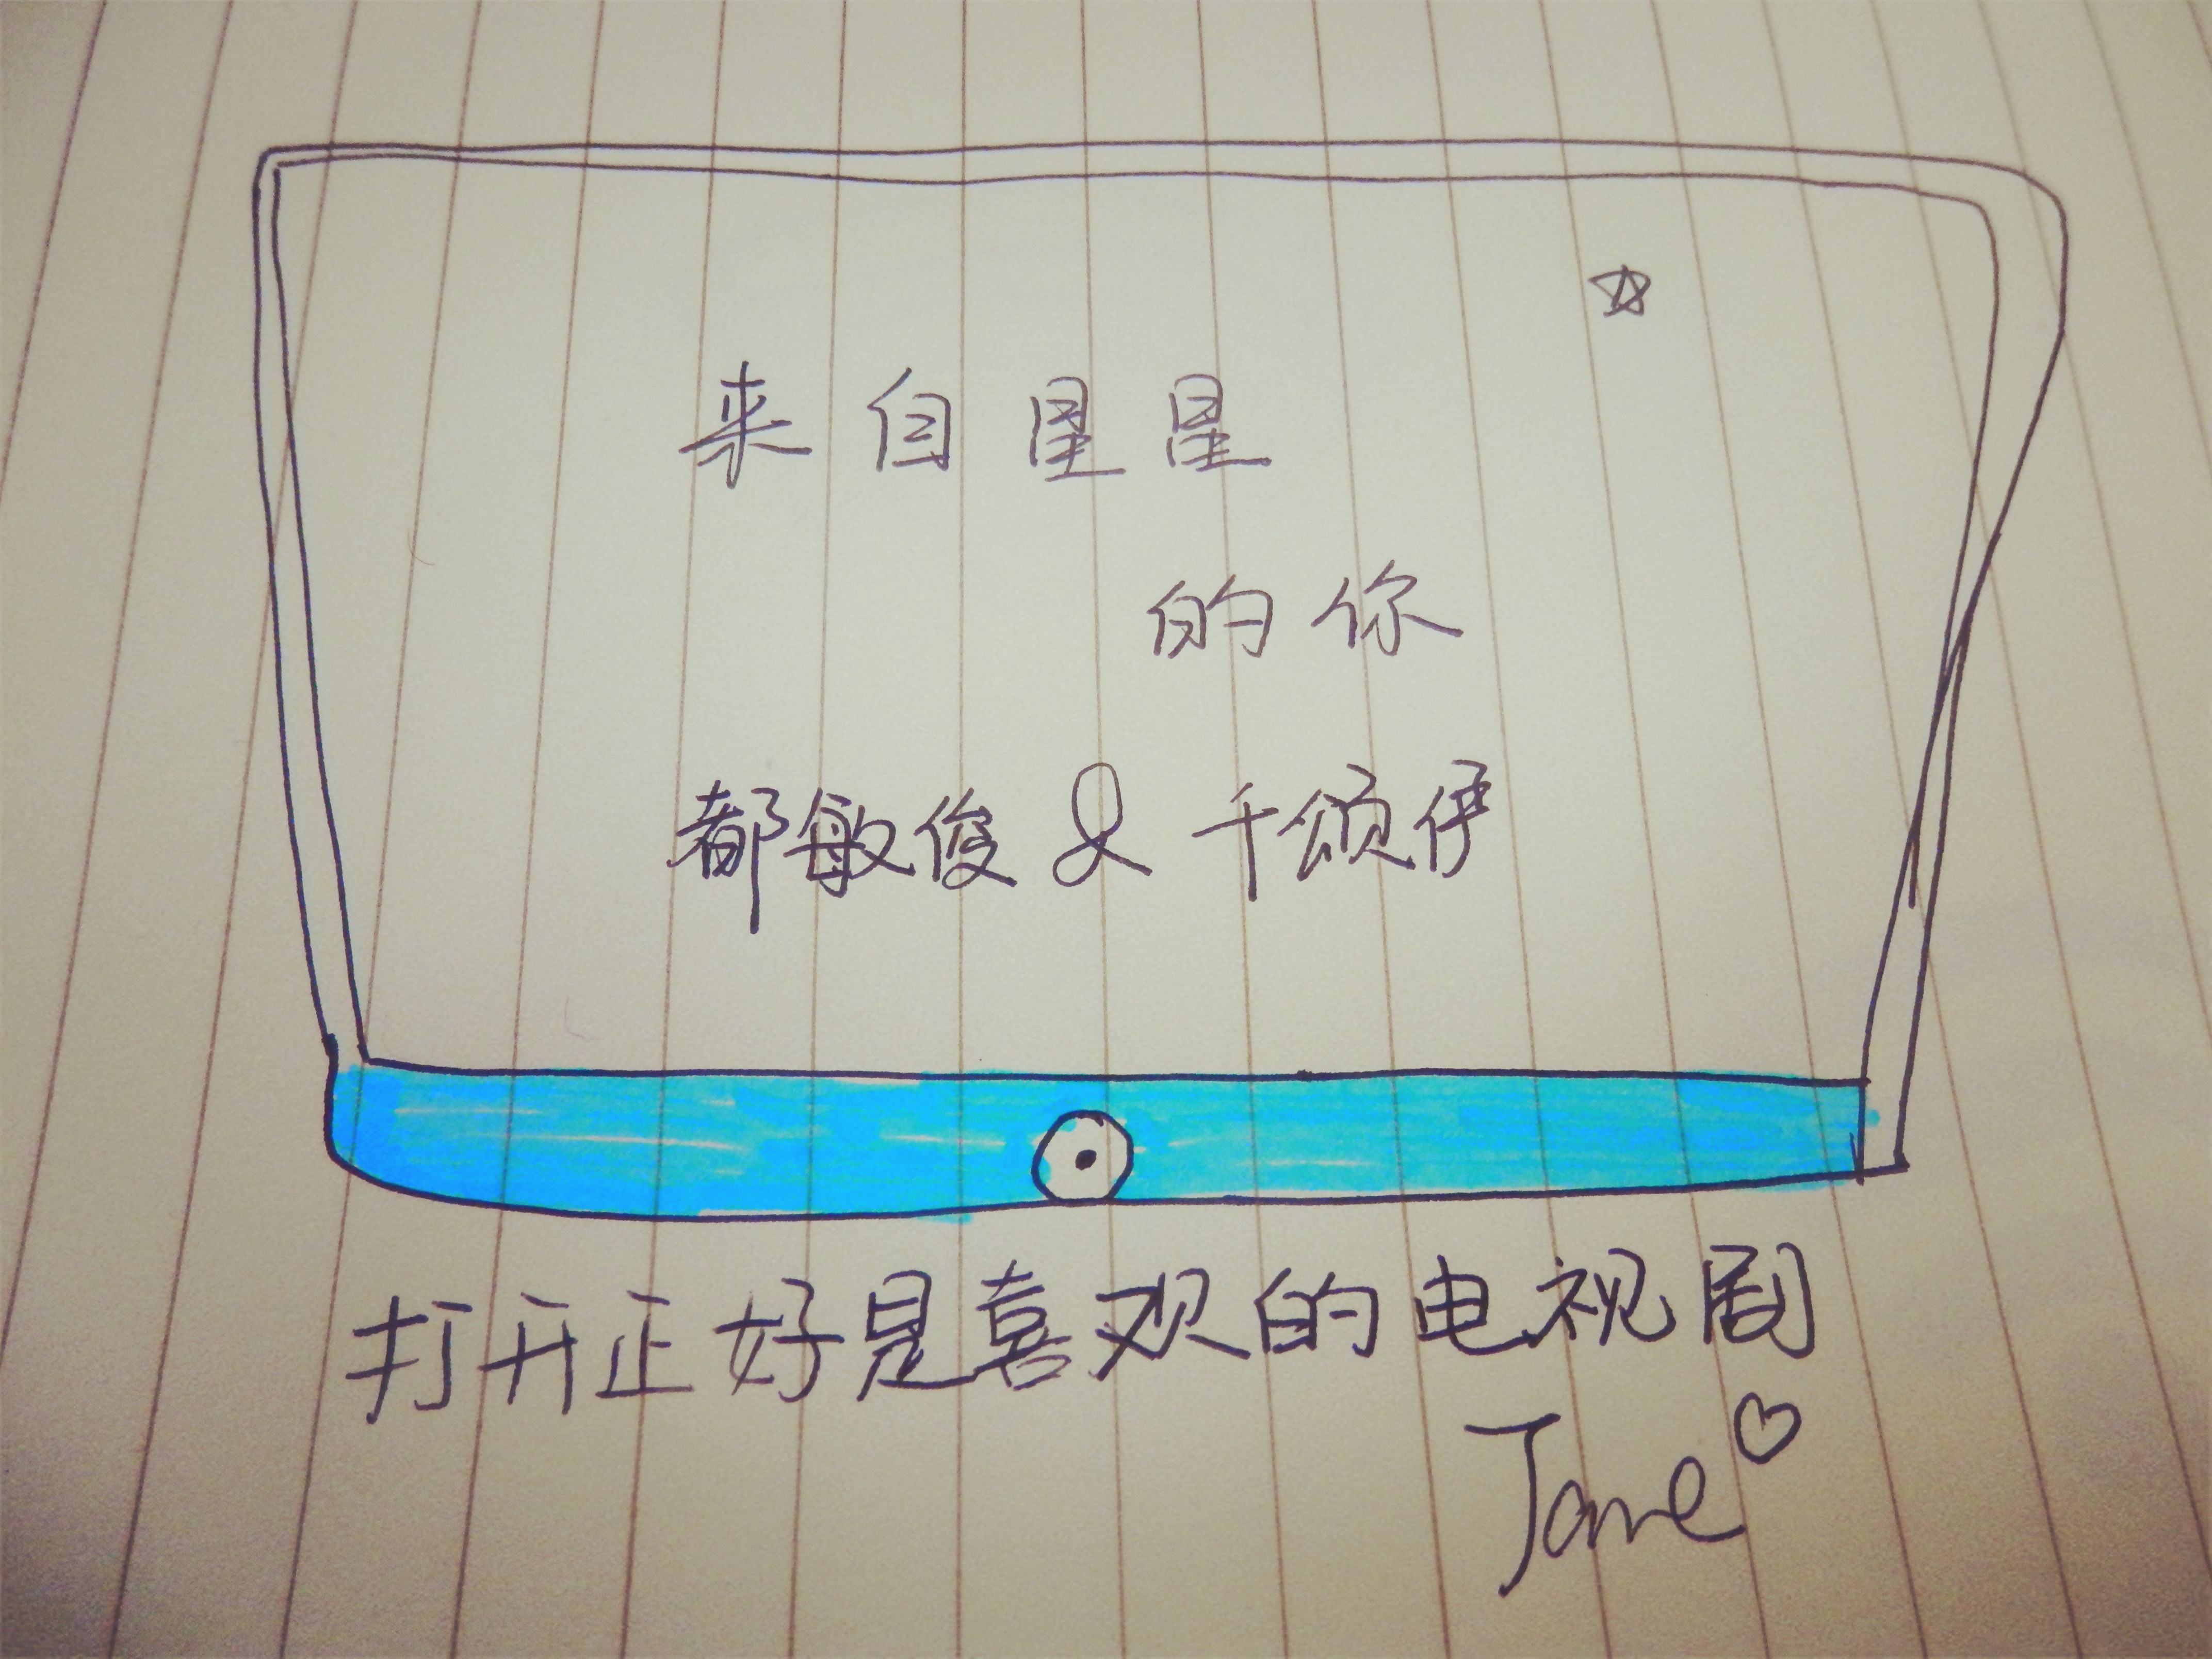 来自星星
的你
都敏俊&千颂伊
打开正好是喜欢的电视剧
Jane